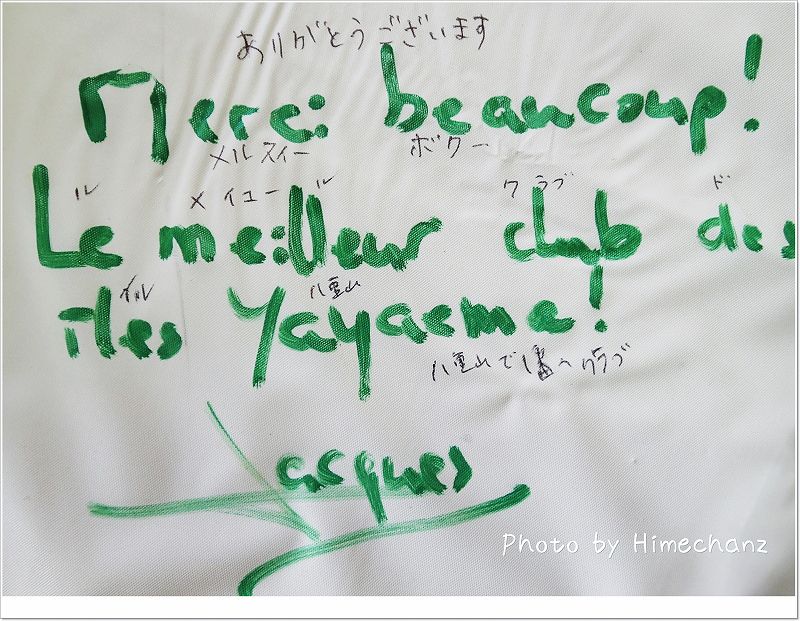 ありがとうございます
Merci beaucoup!
メルスィー ボクー
ル メイユール クラブ ド
Le meilleur club des
イル 八重山
îles Yayaema!
八重山で 1番 クラブ
Jacques
Photo by Himechanz